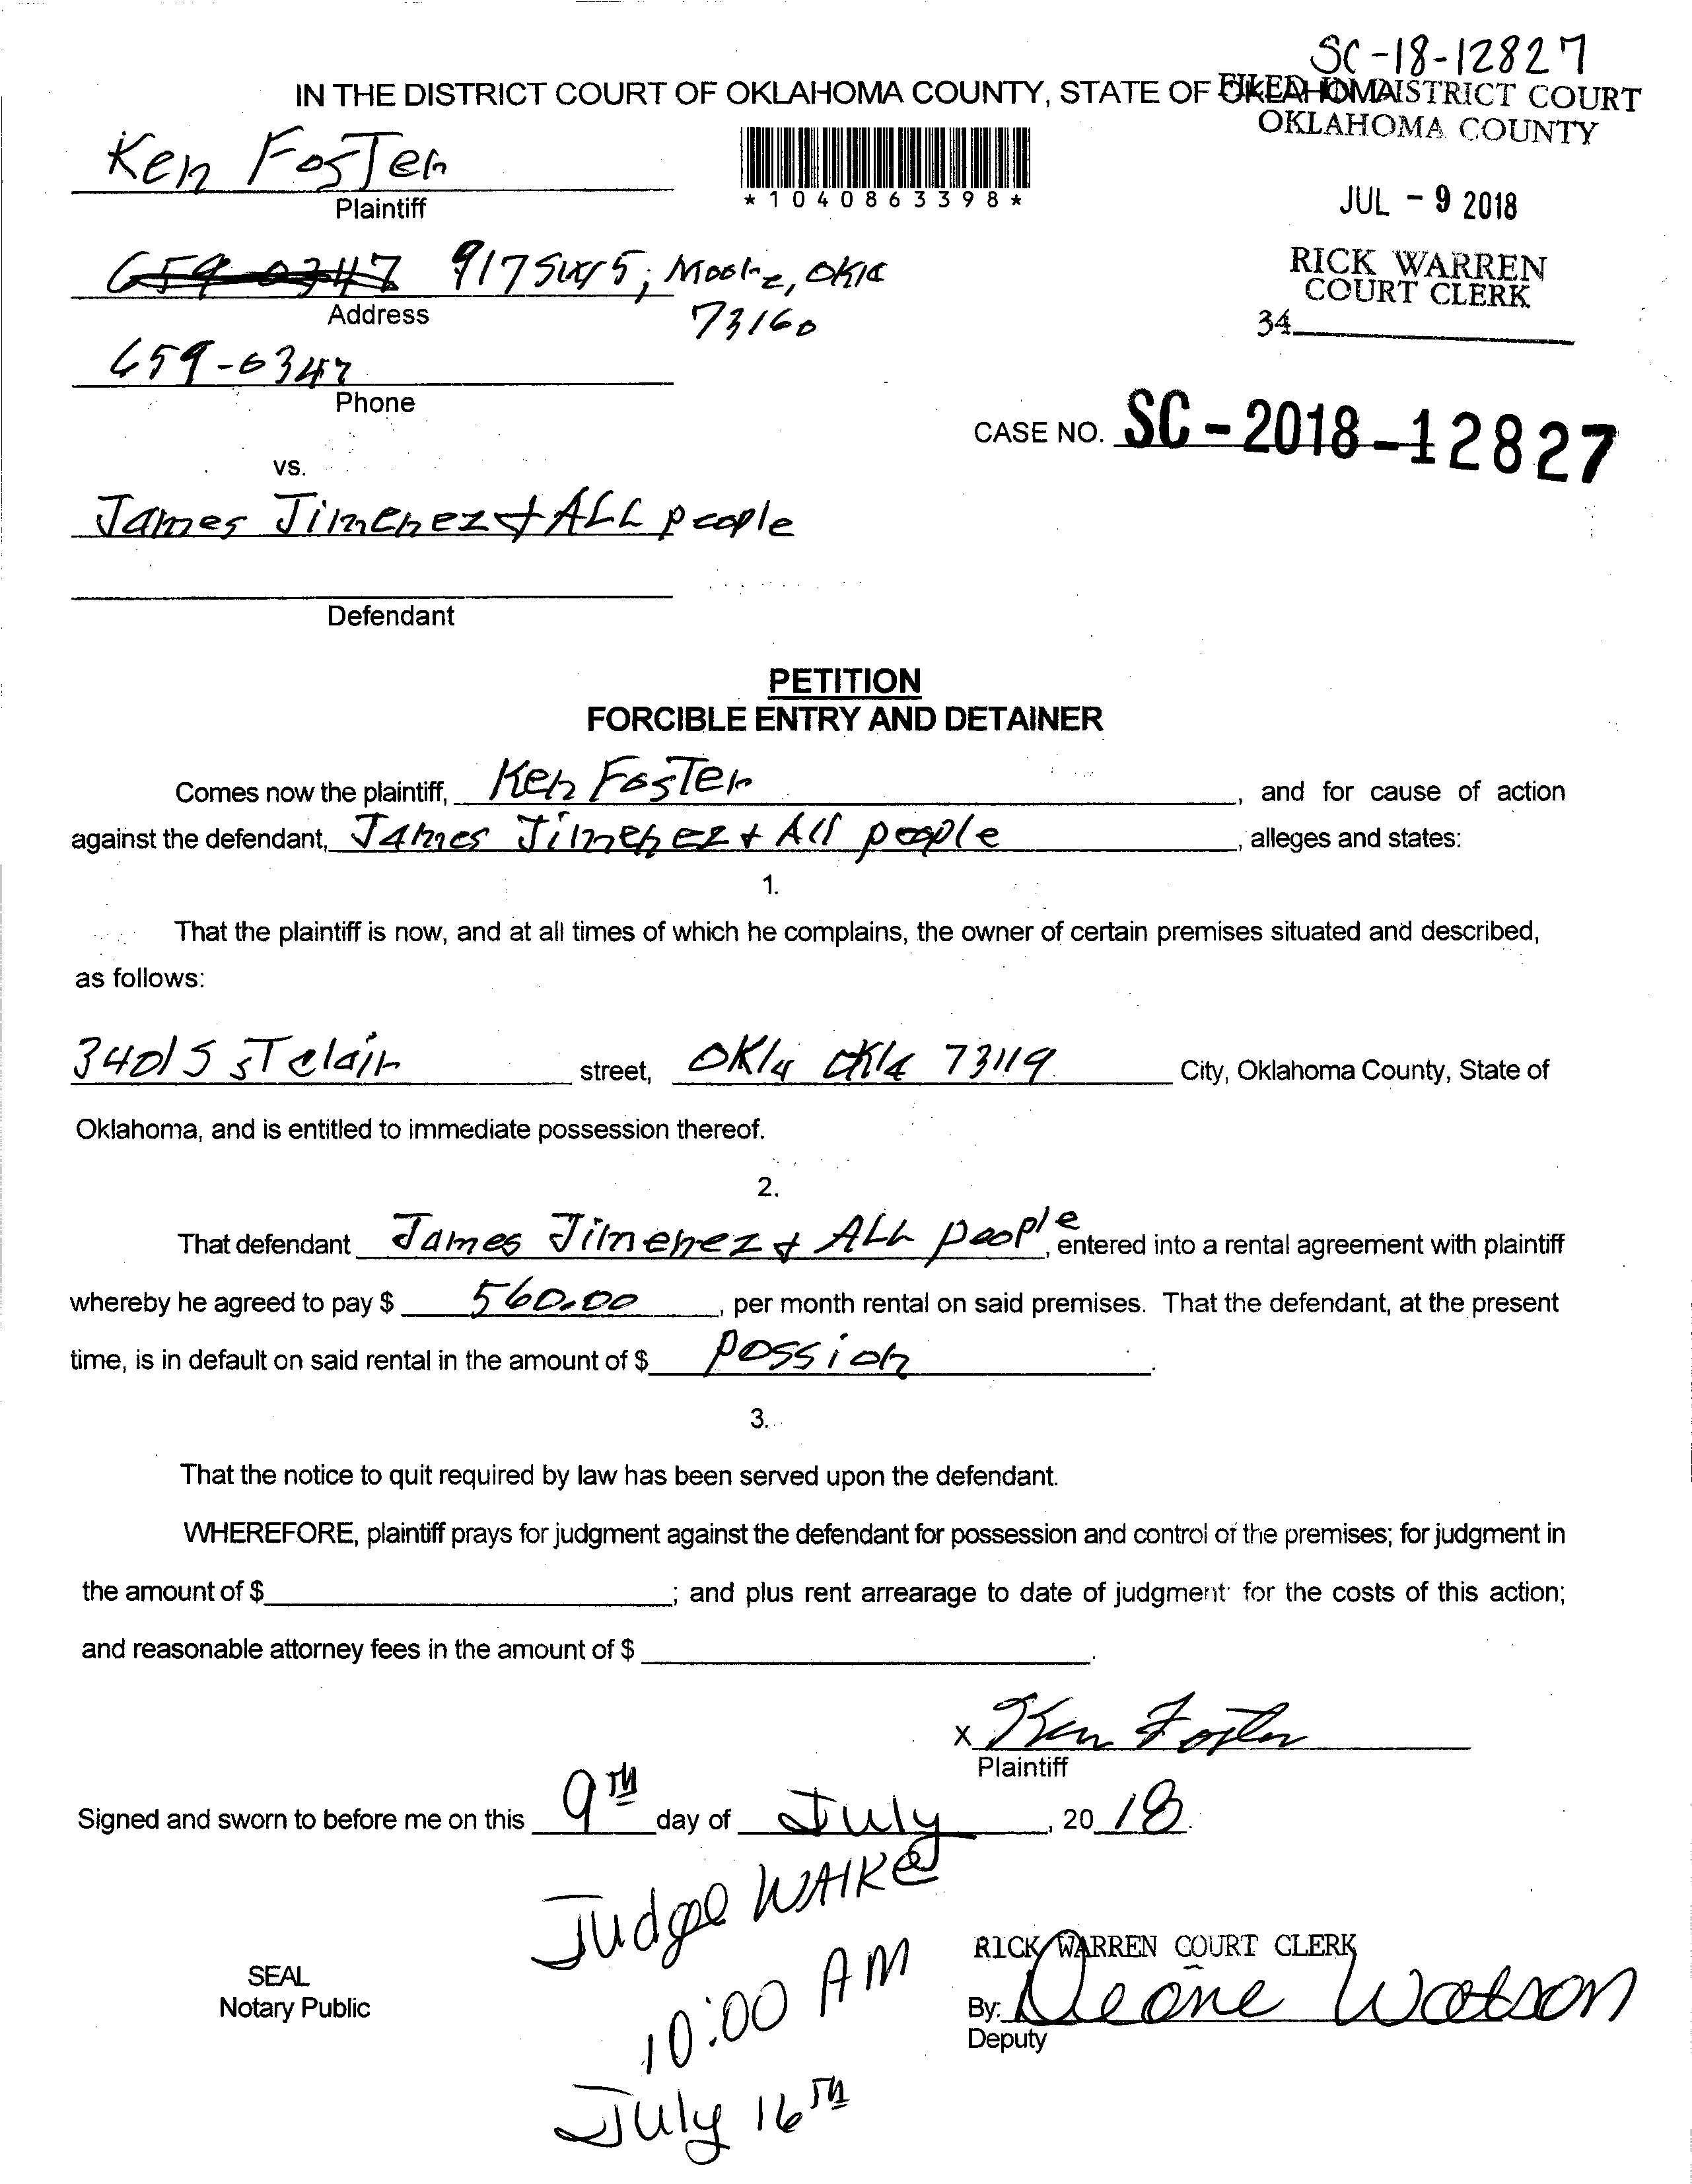 SC-18-12827
IN THE DISTRICT COURT OF OKLAHOMA COUNTY, STATE OF OKLAHOMA
FILED IN DISTRICT COURT
OKLAHOMA COUNTY
Ken Foster
Plaintiff
*1040863398*
JUL - 9 2018
RICK WARREN
COURT CLERK
34
659-0347 917 SW 5, Moore, Okla
Address
73160
659-0347
Phone
CASE NO. SC - 2018 - 12827
vs.
James Jimenez + ALL people
Defendant
PETITION
FORCIBLE ENTRY AND DETAINER
Comes now the plaintiff, Ken Foster, and for cause of action
against the defendant, James Jimenez + All people, alleges and states:
1.
That the plaintiff is now, and at all times of which he complains, the owner of certain premises situated and described,
as follows:
3401 S ST clair street, Okla Okla 73119 City, Oklahoma County, State of
Oklahoma, and is entitled to immediate possession thereof.
2.
That defendant James Jimenez + ALL people, entered into a rental agreement with plaintiff
whereby he agreed to pay $ 560.00, per month rental on said premises. That the defendant, at the present
time, is in default on said rental in the amount of $ possion.
3.
That the notice to quit required by law has been served upon the defendant.
WHEREFORE, plaintiff prays for judgment against the defendant for possession and control of the premises; for judgment in
the amount of $ ; and plus rent arrearage to date of judgment for the costs of this action;
and reasonable attorney fees in the amount of $ .
x Ken Foster
Plaintiff
Signed and sworn to before me on this 9TH day of July, 20 18.
Judge WAlke
10:00 AM
July 16TH
SEAL
Notary Public
RICK WARREN COURT CLERK
By: Deone Watson
Deputy